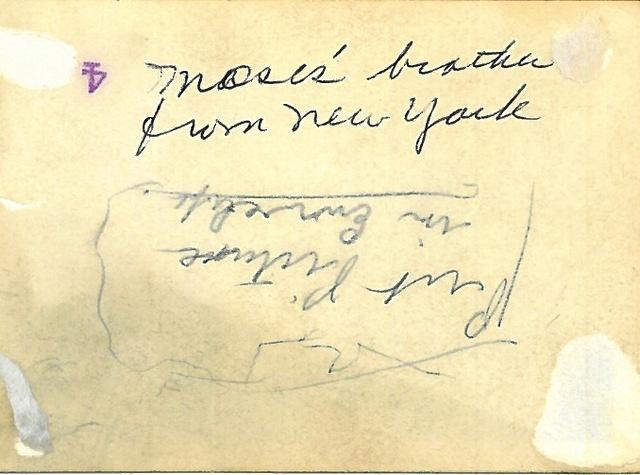 4
Moses' brother
from New York
Put Picture
in Envelope.